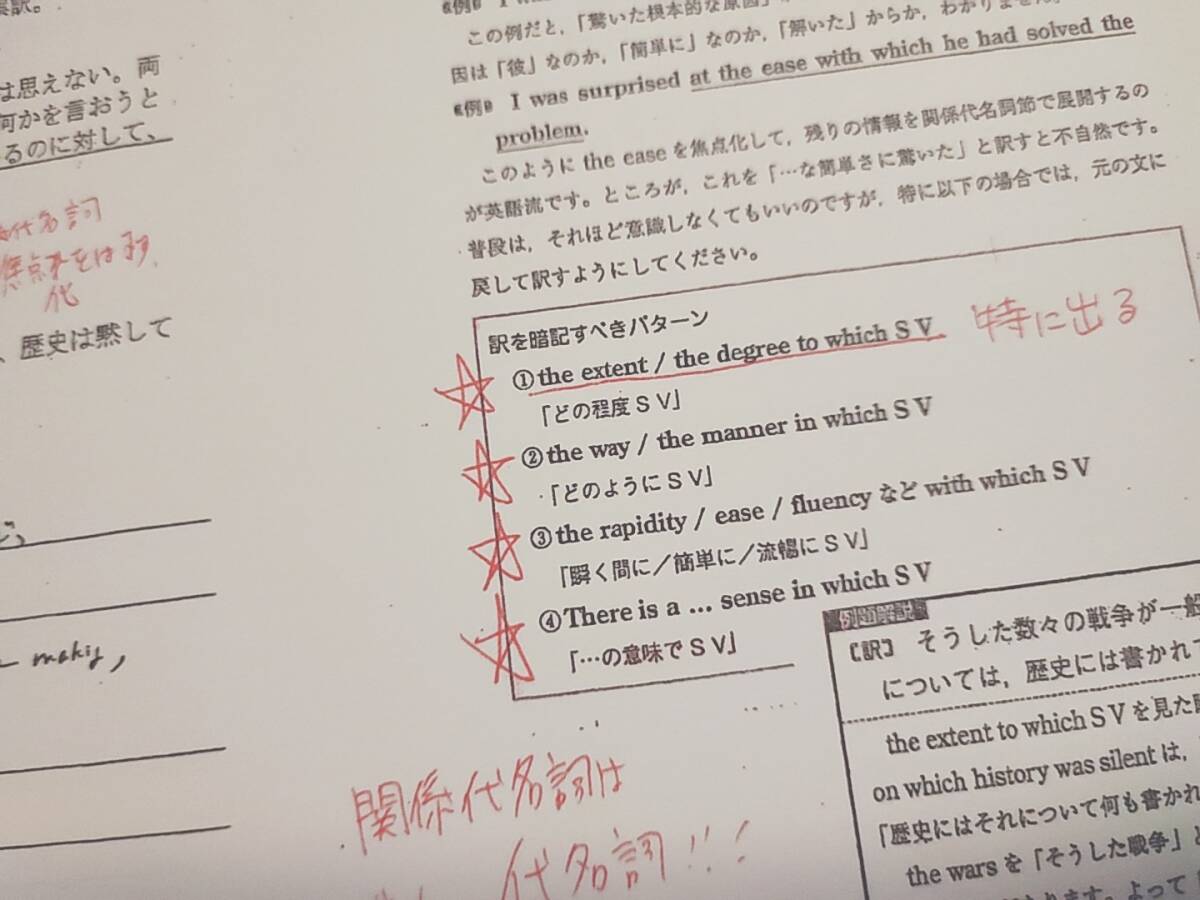 表訳。
は思えない。両
何かを言おうと
るのに対して、
代名詞
焦点をはます
化
、歴史は黙して
making,
《例》 I was
この例だと，「驚いた根本的な原因」
因は「彼」なのか，「簡単に」なのか，「解いた」からか，わかりません。
《例》 I was surprised at the ease with which he had solved the
problem.
このように the ease を焦点化して，残りの情報を関係代名詞節で展開するの
が英語流です。ところが，これを「…な簡単さに驚いた」と訳すと不自然です。
普段は，それほど意識しなくてもいいのですが，特に以下の場合では，元の文に
戻して訳すようにしてください。
訳を暗記すべきパターン
①the extent / the degree to which S V 特に出る
「どの程度 S V」
②the way / the manner in which S V
「どのように S V」
③the rapidity / ease / fluency など with which S V
「瞬く間に／簡単に／流暢に S V」
④There is a … sense in which S V
「…の意味で S V」
関係代名詞は
代名詞!!!
例題解説
〔訳〕 そうした数々の戦争が一般
については，歴史には書かれて
the extent to which S V を見た
on which history was silent は，
「歴史にはそれについて何も書かれ
the wars を「そうした戦争」と
ます。よって